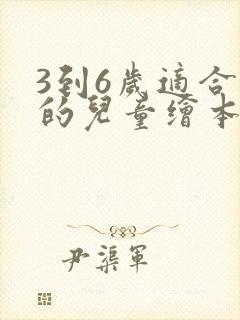 3到6歲適合
的兒童繪本
尹渠軍